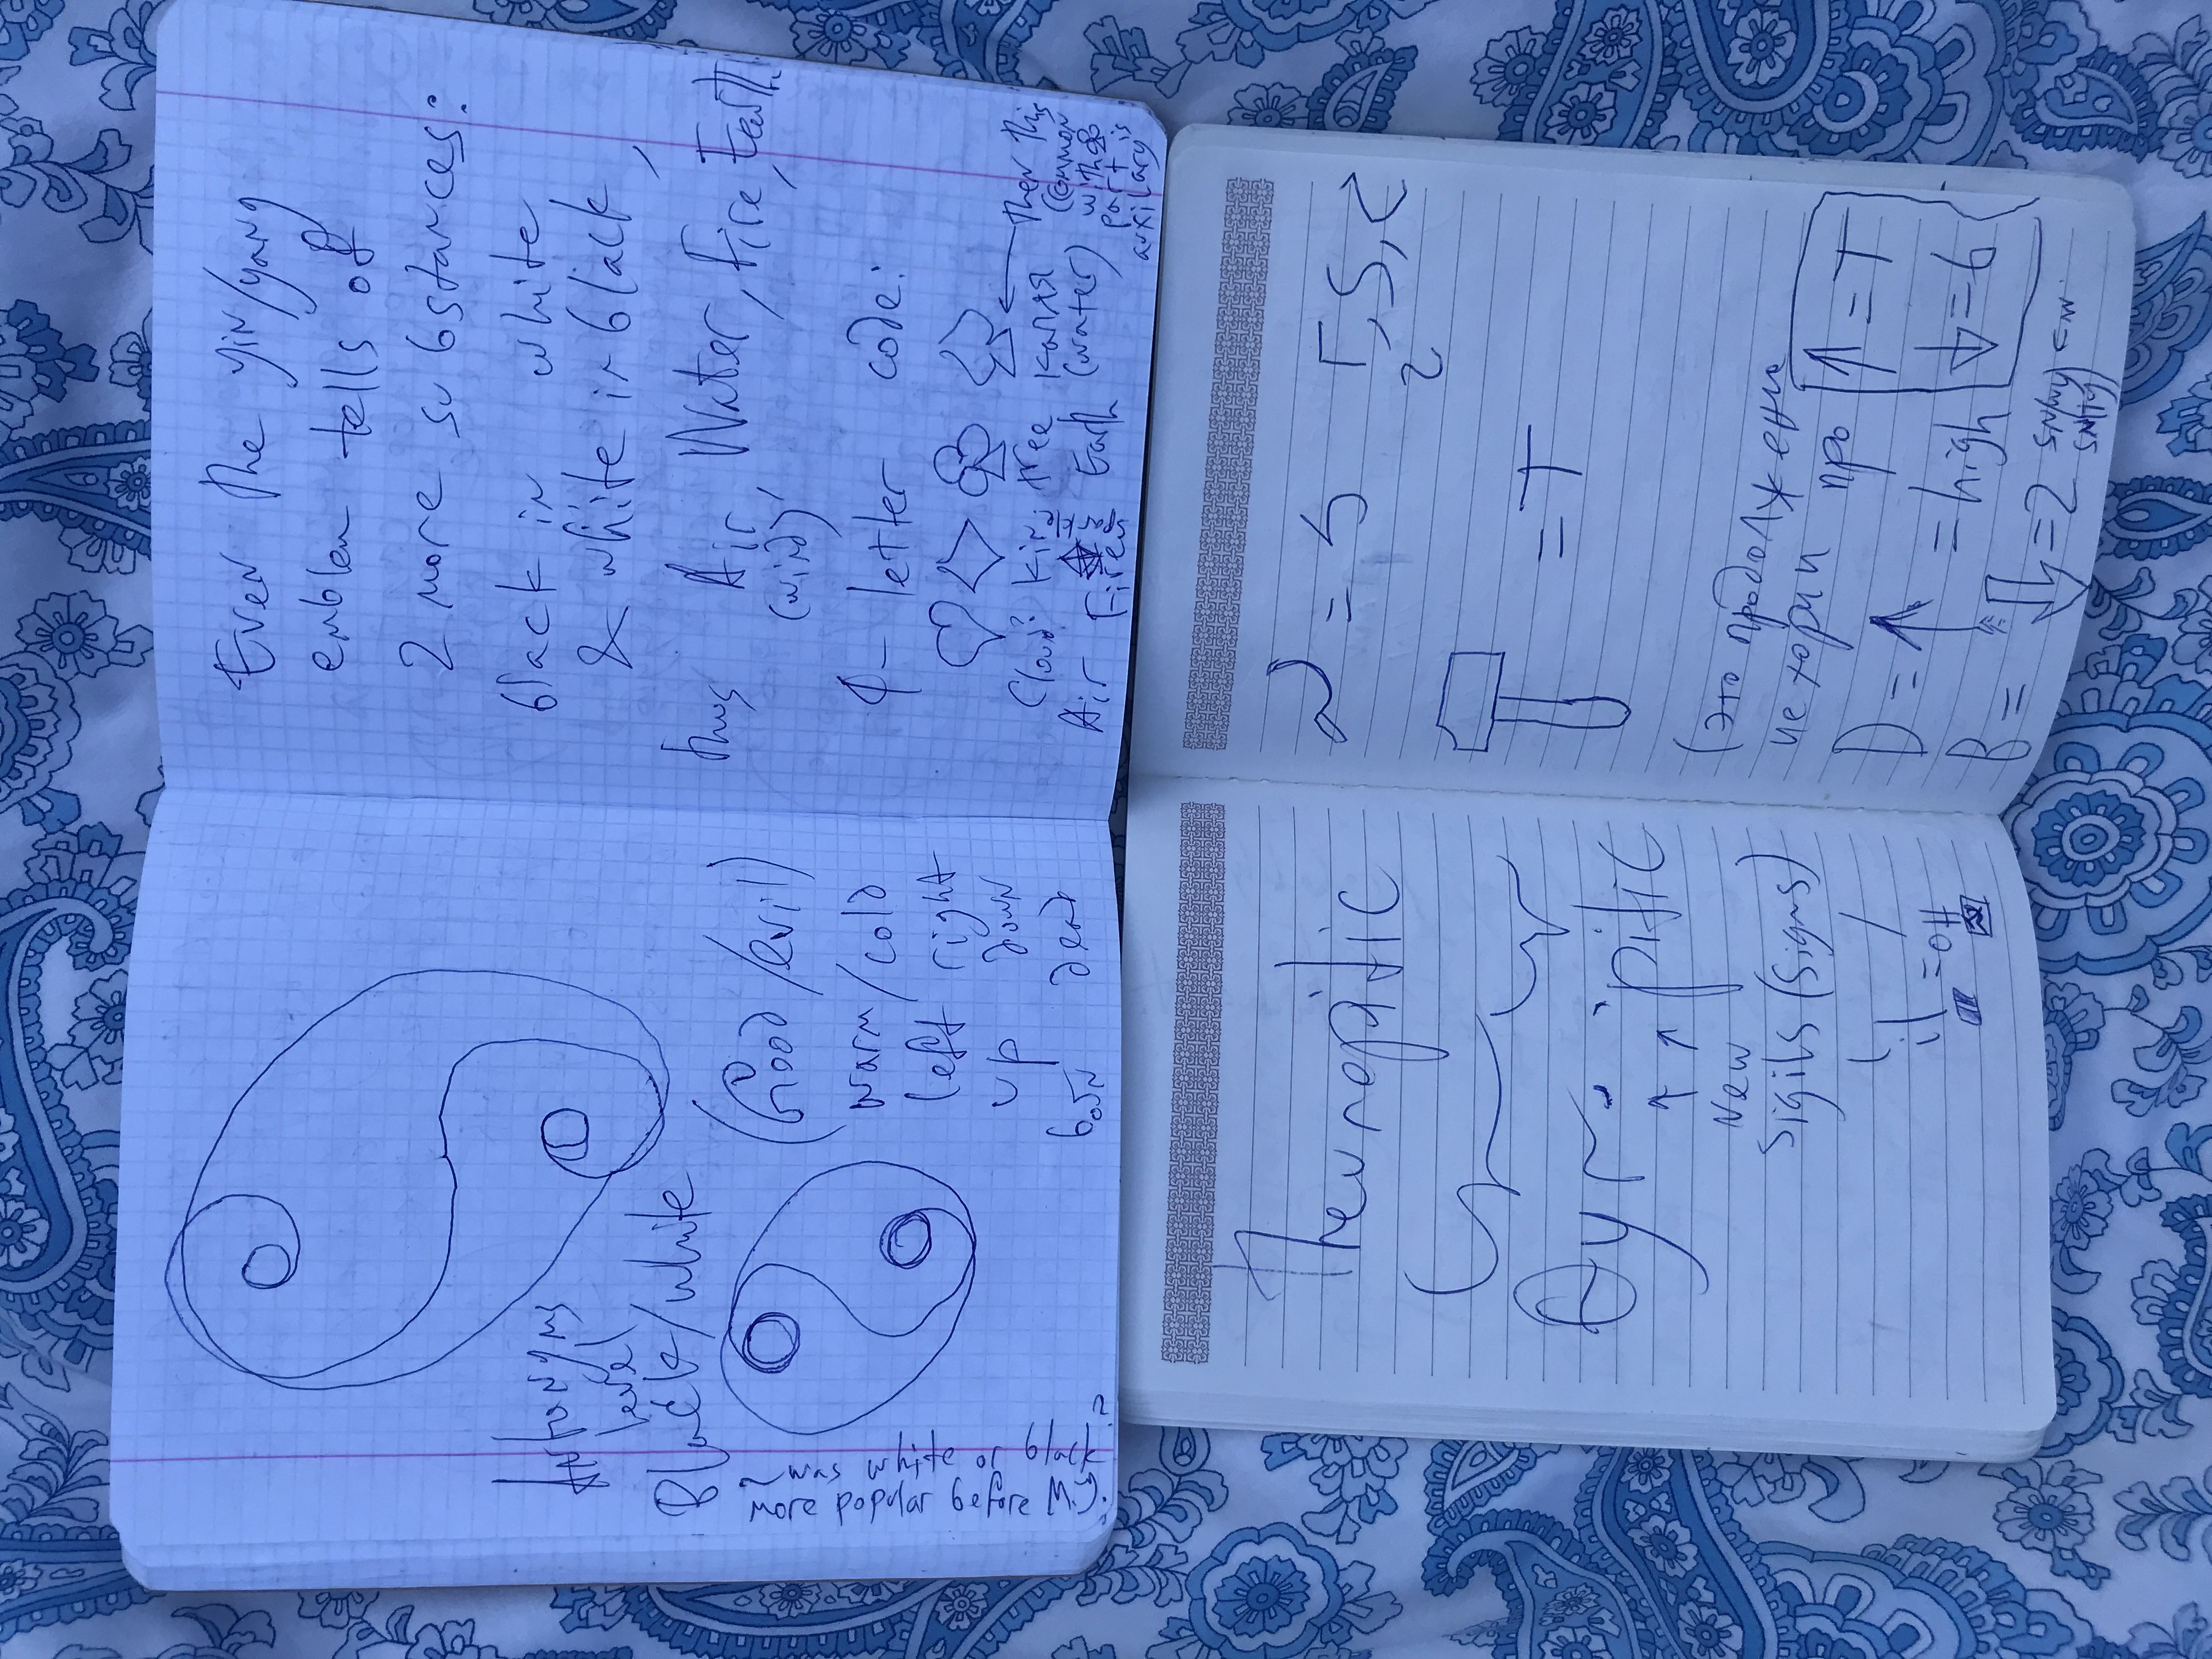 Antonyms
level
Black/white
~ was white or black
more popular before M.J.?
(Good/evil)
warm/cold
left right
up down
born dead
Even the yin/yang
emblem tells of
2 more substances:
black in white
& white in black,
thus Air, Water, Fire, Earth
(wind)
4-letter code:
Cloud? tree капля
Air Fire sparkle Earth (water)
then this
common
with
part is
auxilary
theuropitic
θyr pitic
New
sigils (signs)
il = off
= S Г, S, Z
2
= T
(это продолжение
истории про
↑ = T
↓ = б
D = ↑ = high
B = ⇓ = 2